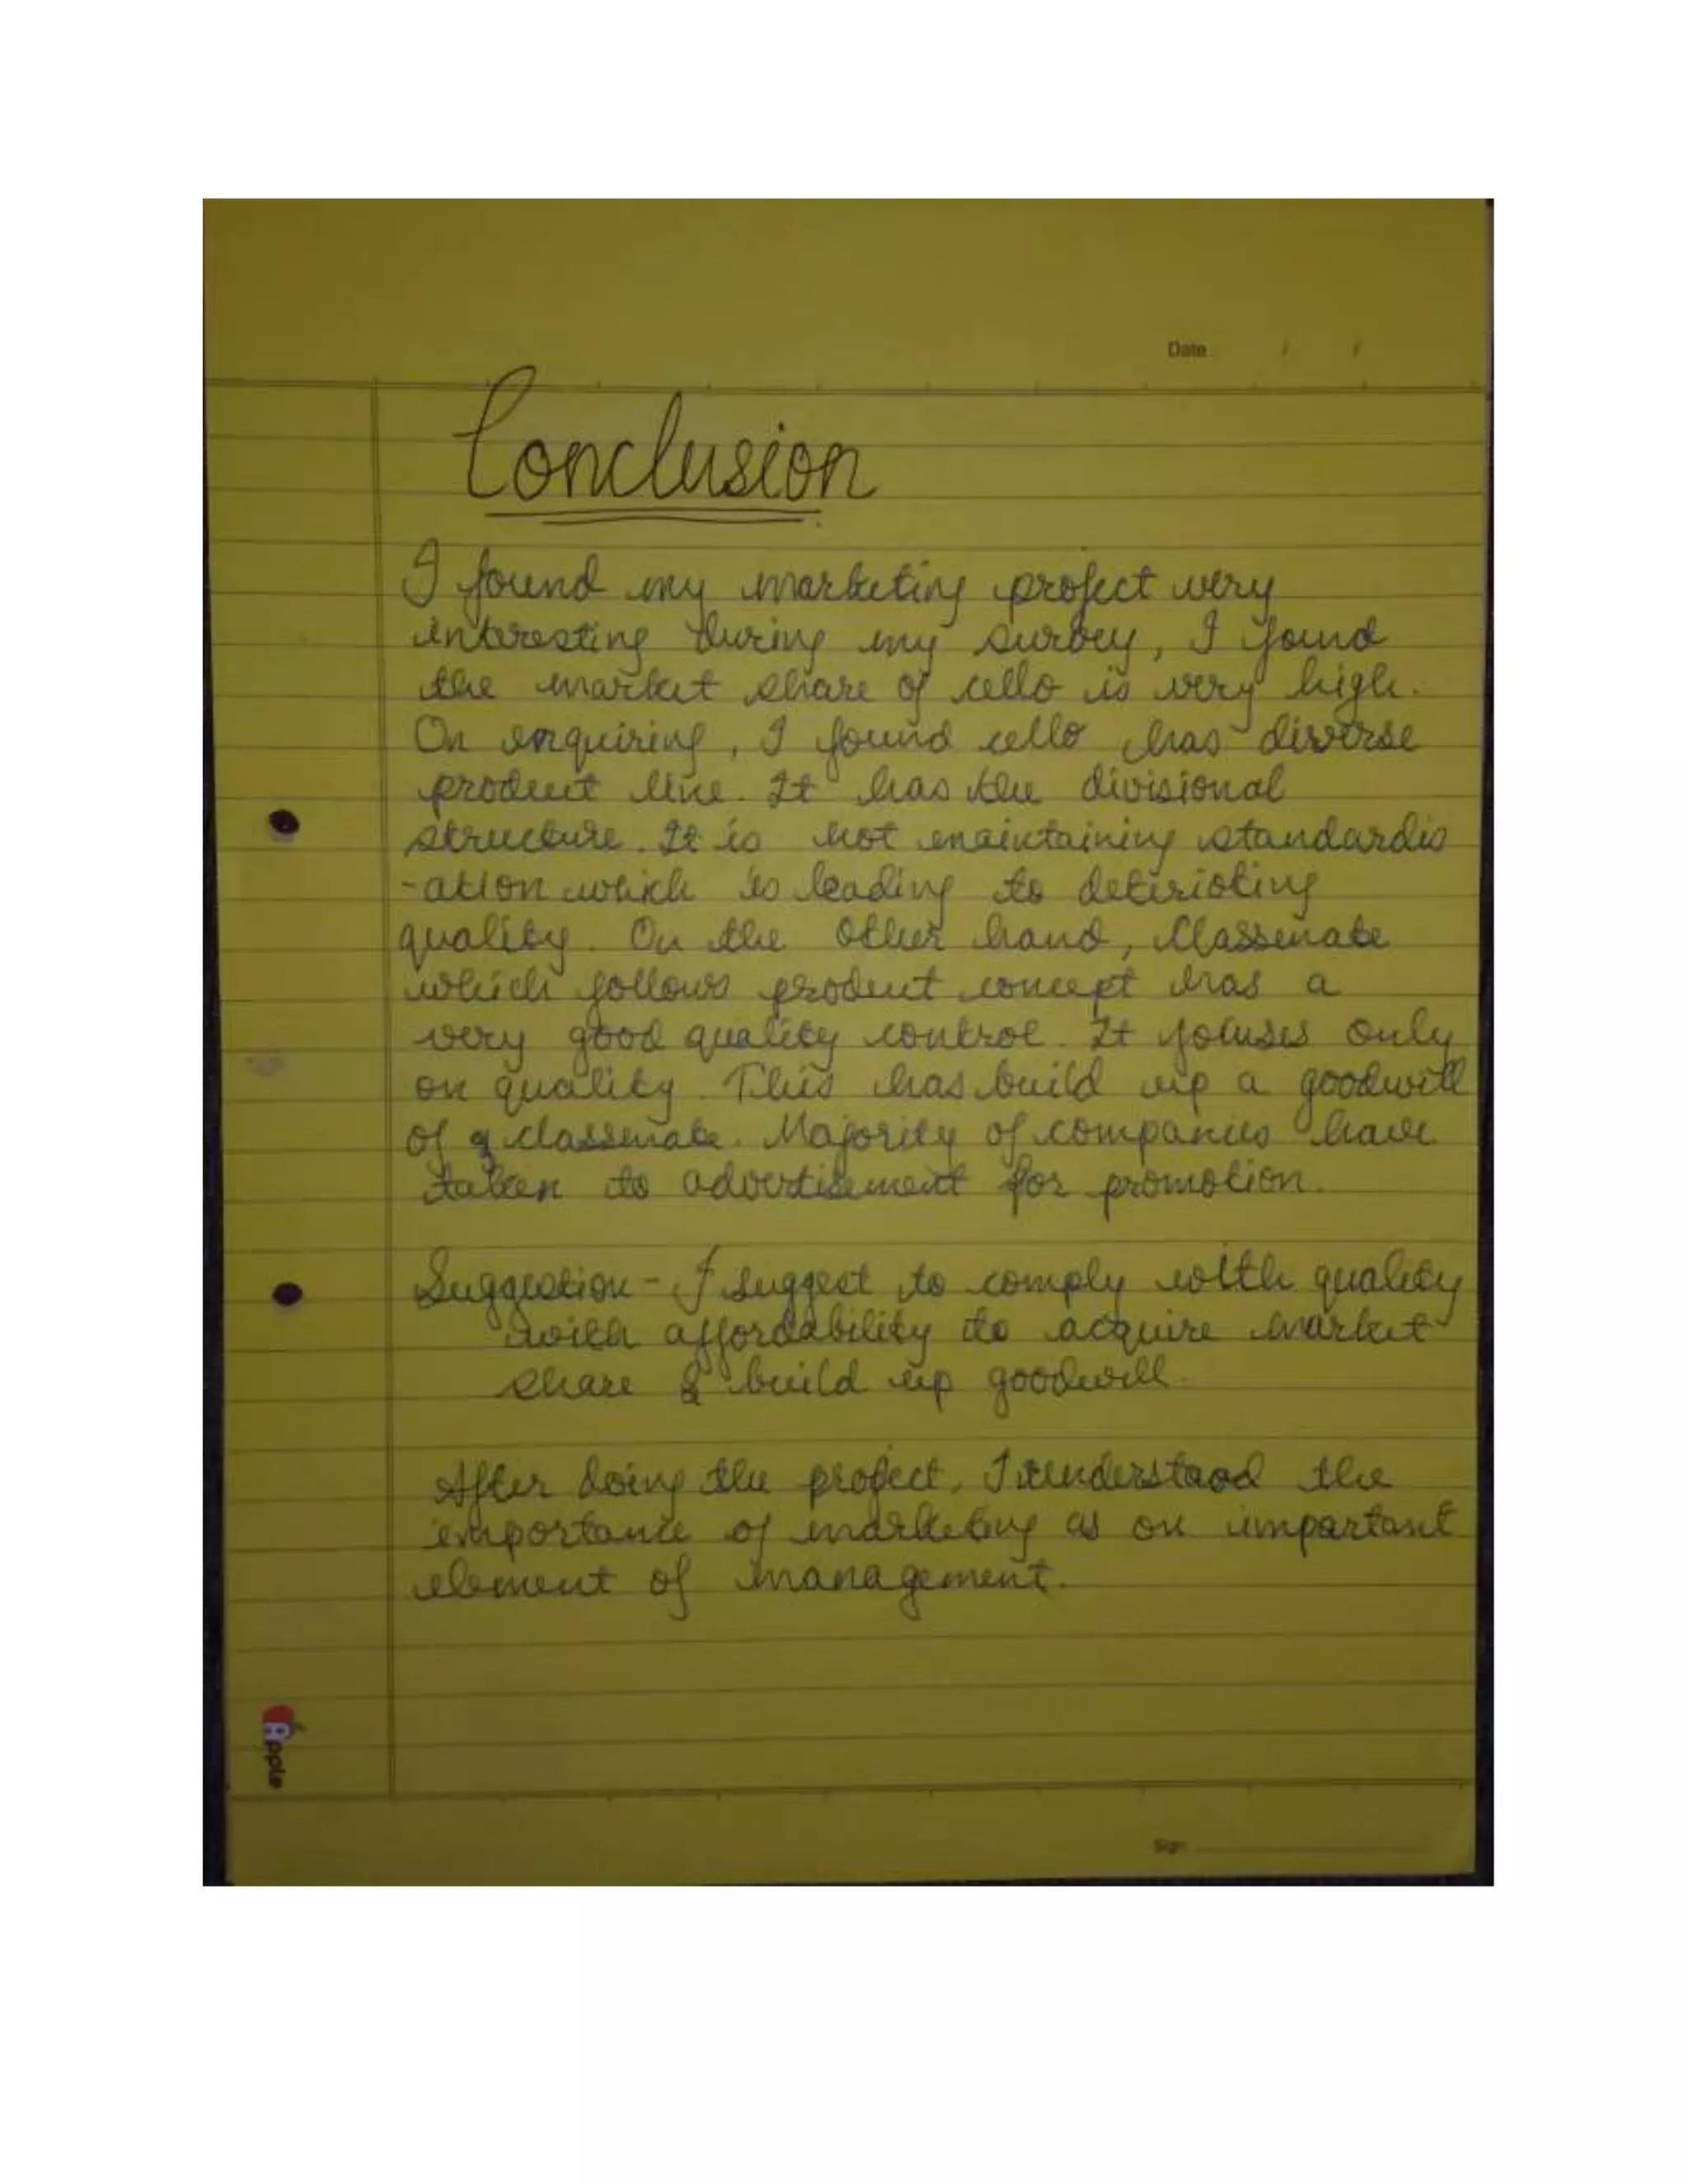 Date / /
Conclusion
I found my marketing project very
interesting during my survey, I found
the market share of cello is very high.
On enquiring, I found cello has diverse
product line. It has the divisional
structure. It is not maintaining standardis
-ation which is leading to detirioting
quality. On the other hand, Classmate
which follows product concept has a
very good quality control. It focuses only
on quality. This has build up a goodwill
of classmate. Majority of companies have
taken to advertisement for promotion.
Suggestion - I suggest to comply with quality
with affordability to acquire market
share & build up goodwill.
After doing the project, I understood the
importance of marketing as an important
element of management.
Apple
Sign